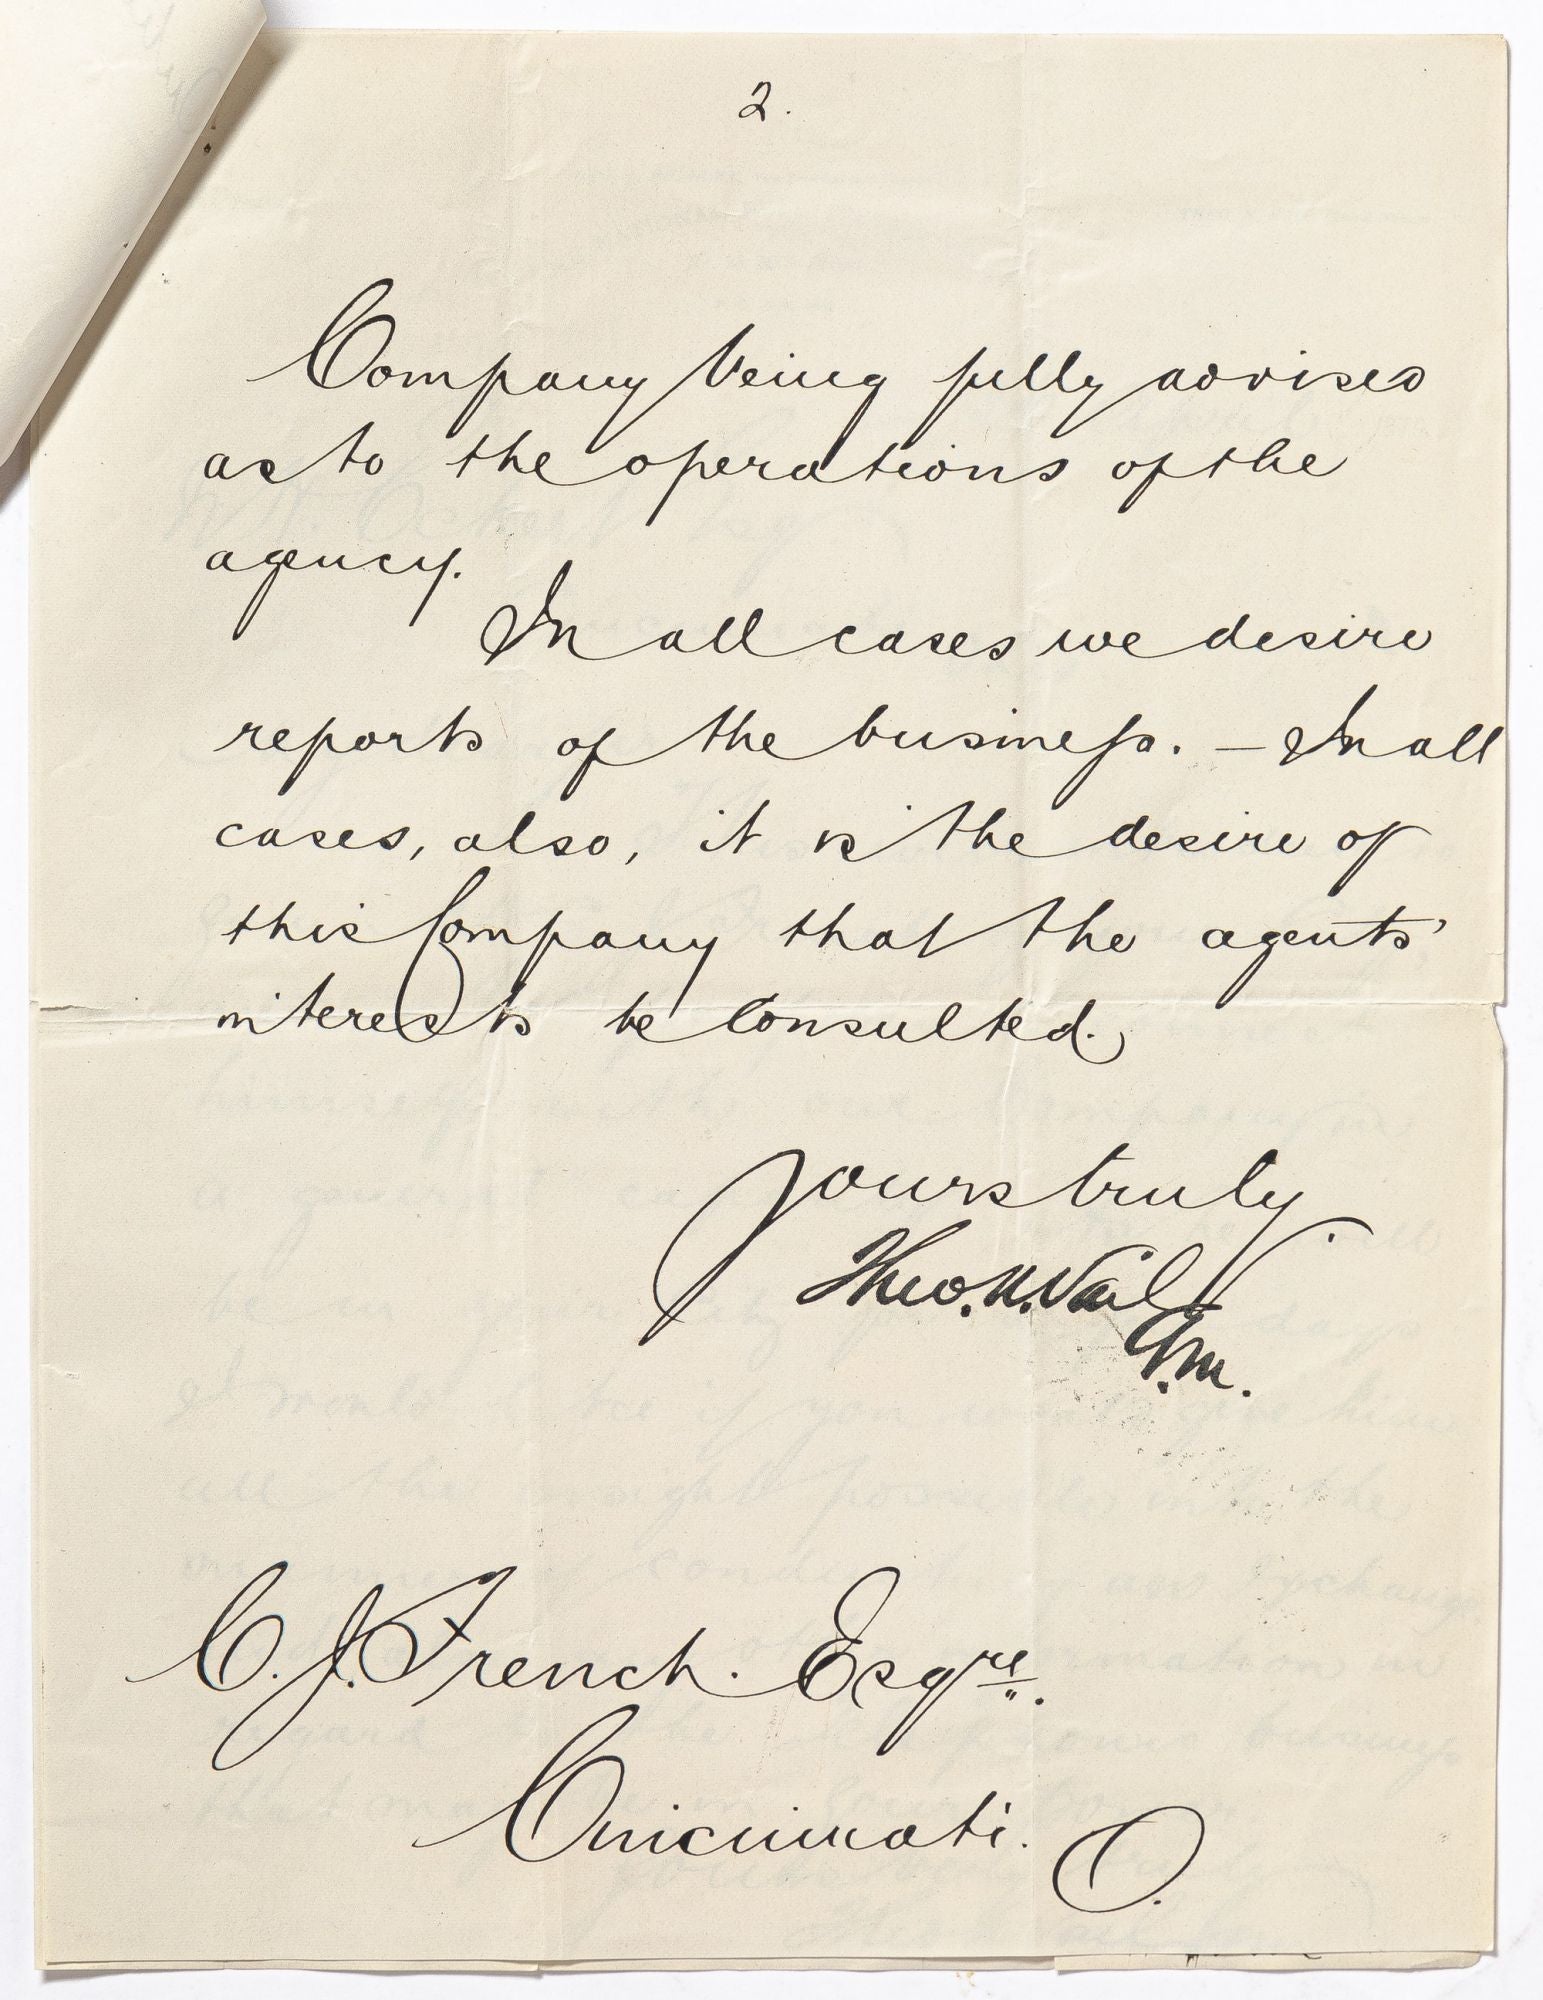 2.
Company being fully advised
as to the operations of the
agency.
In all cases we desire
reports of the business. — In all
cases, also, it is the desire of
this Company that the agents'
interests be consulted.
Yours truly.
Theo. N. Vail
G.M.
C. J. French. Esqre.
Cincinnati. O.